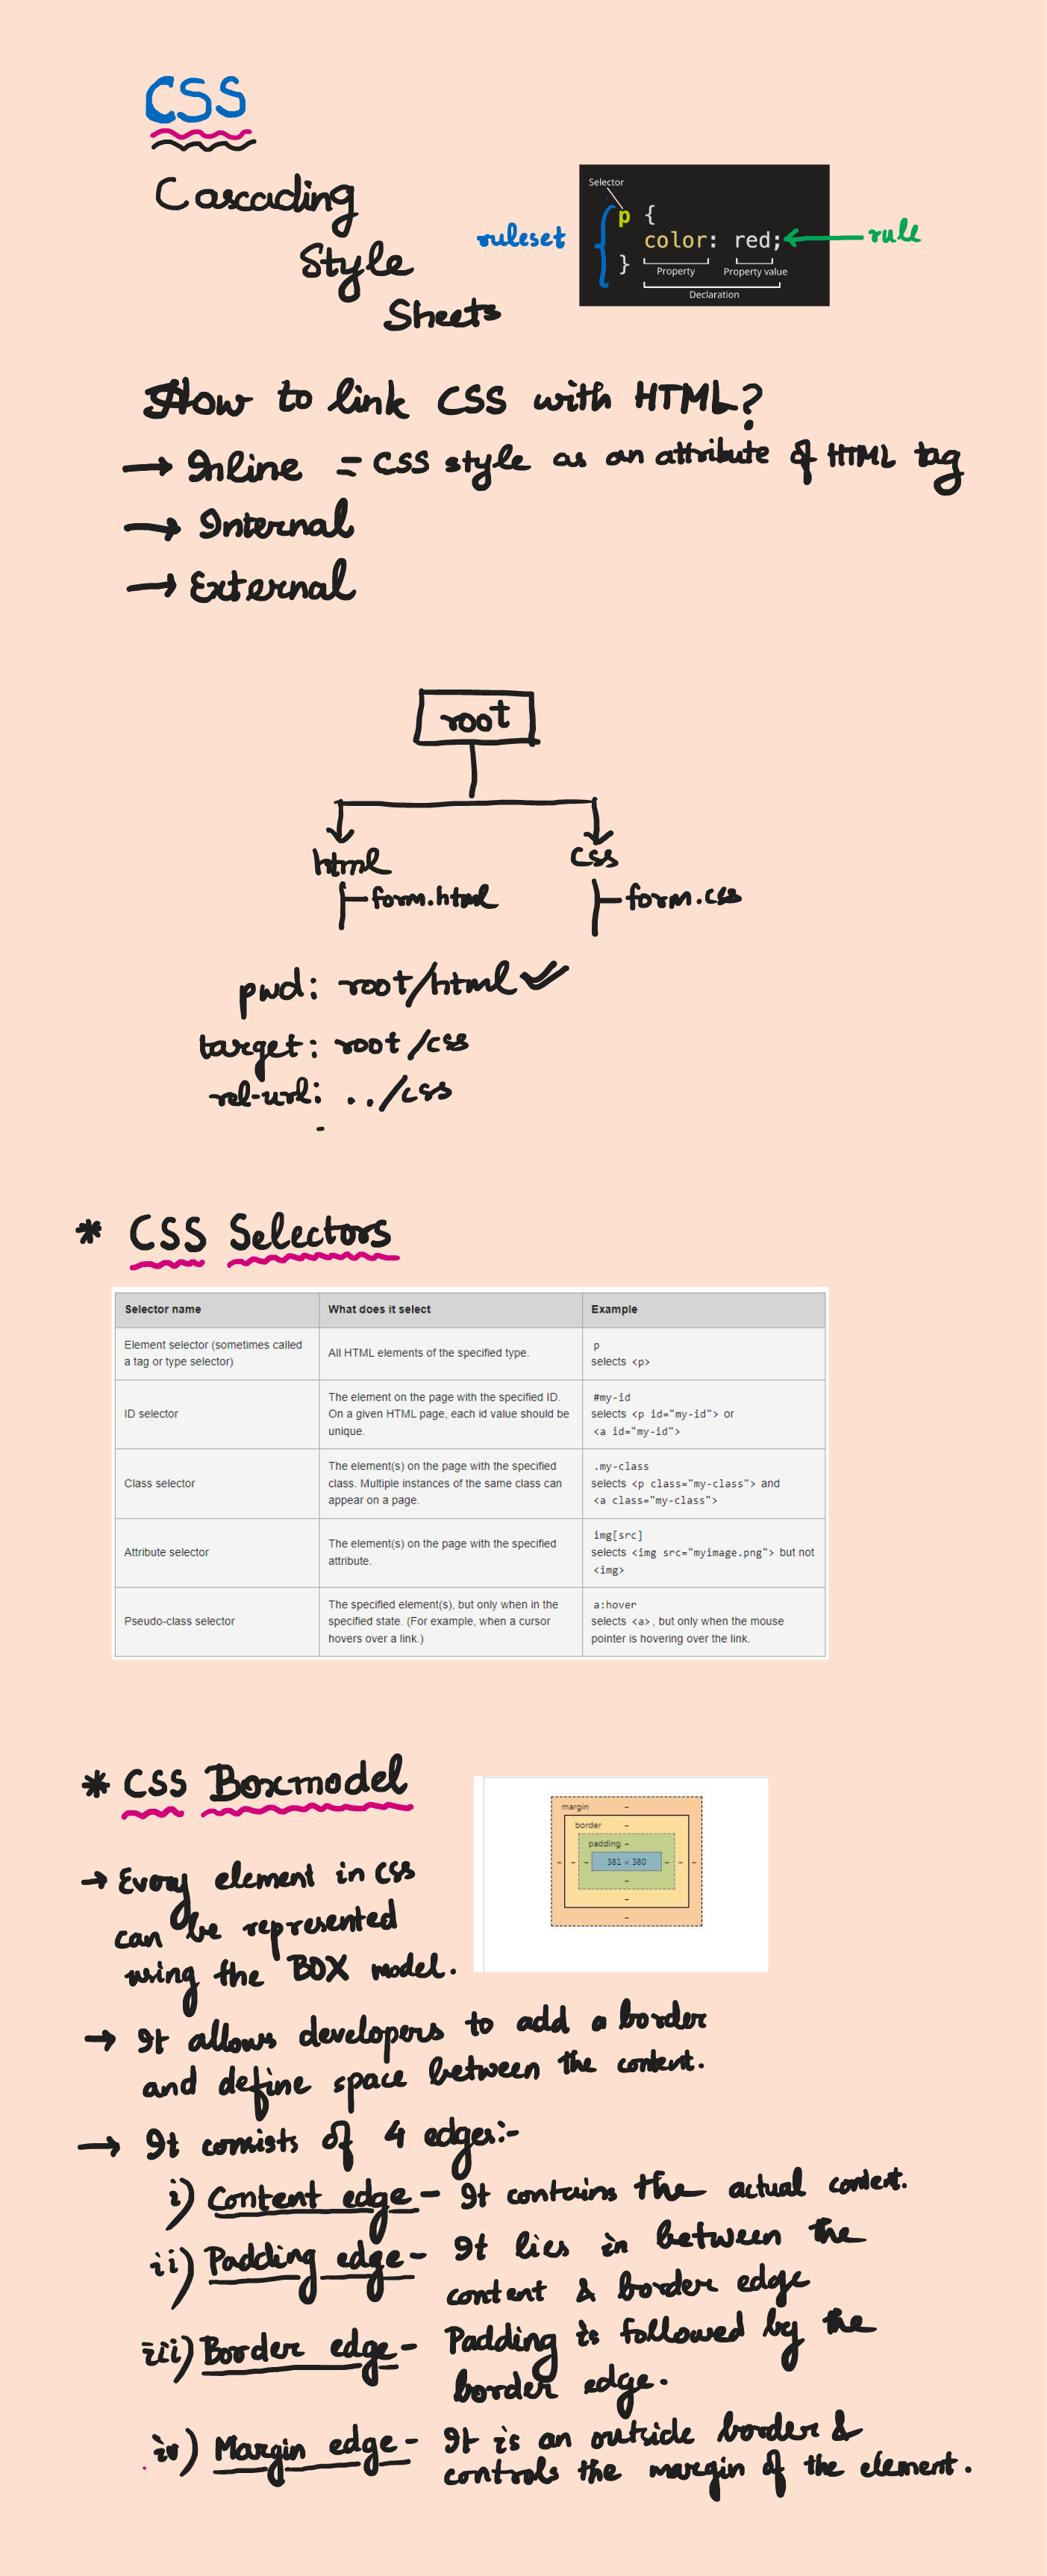 CSS
Cascading
Style
Sheets
ruleset
Selector
p {
color: red;
}
Property
Property value
Declaration
rule
How to link CSS with HTML?
→ Inline = CSS style as an attribute of HTML tag
→ Internal
→ External
root
html
css
form.html
form.css
pwd: root/html
target: root/css
rel-url: ../css
* CSS Selectors
Selector name What does it select Example
Element selector (sometimes called
a tag or type selector)
All HTML elements of the specified type.
p
selects <p>
ID selector
The element on the page with the specified ID.
On a given HTML page, each id value should be
unique.
#my-id
selects <p id="my-id"> or
<a id="my-id">
Class selector
The element(s) on the page with the specified
class. Multiple instances of the same class can
appear on a page.
.my-class
selects <p class="my-class"> and
<a class="my-class">
Attribute selector
The element(s) on the page with the specified
attribute.
img[src]
selects <img src="myimage.png"> but not
<img>
Pseudo-class selector
The specified element(s), but only when in the
specified state. (For example, when a cursor
hovers over a link.)
a:hover
selects <a>, but only when the mouse
pointer is hovering over the link.
* CSS Boxmodel
margin –
border –
padding –
– – – 381 × 380 – – –
–
–
–
→ Every element in CSS
can be represented
using the BOX model.
→ It allows developers to add a border
and define space between the content.
→ It consists of 4 edges:-
i) Content edge - It contains the actual content.
ii) Padding edge - It lies in between the
content & border edge
iii) Border edge - Padding is followed by the
border edge.
iv) Margin edge - It is an outside border &
controls the margin of the element.